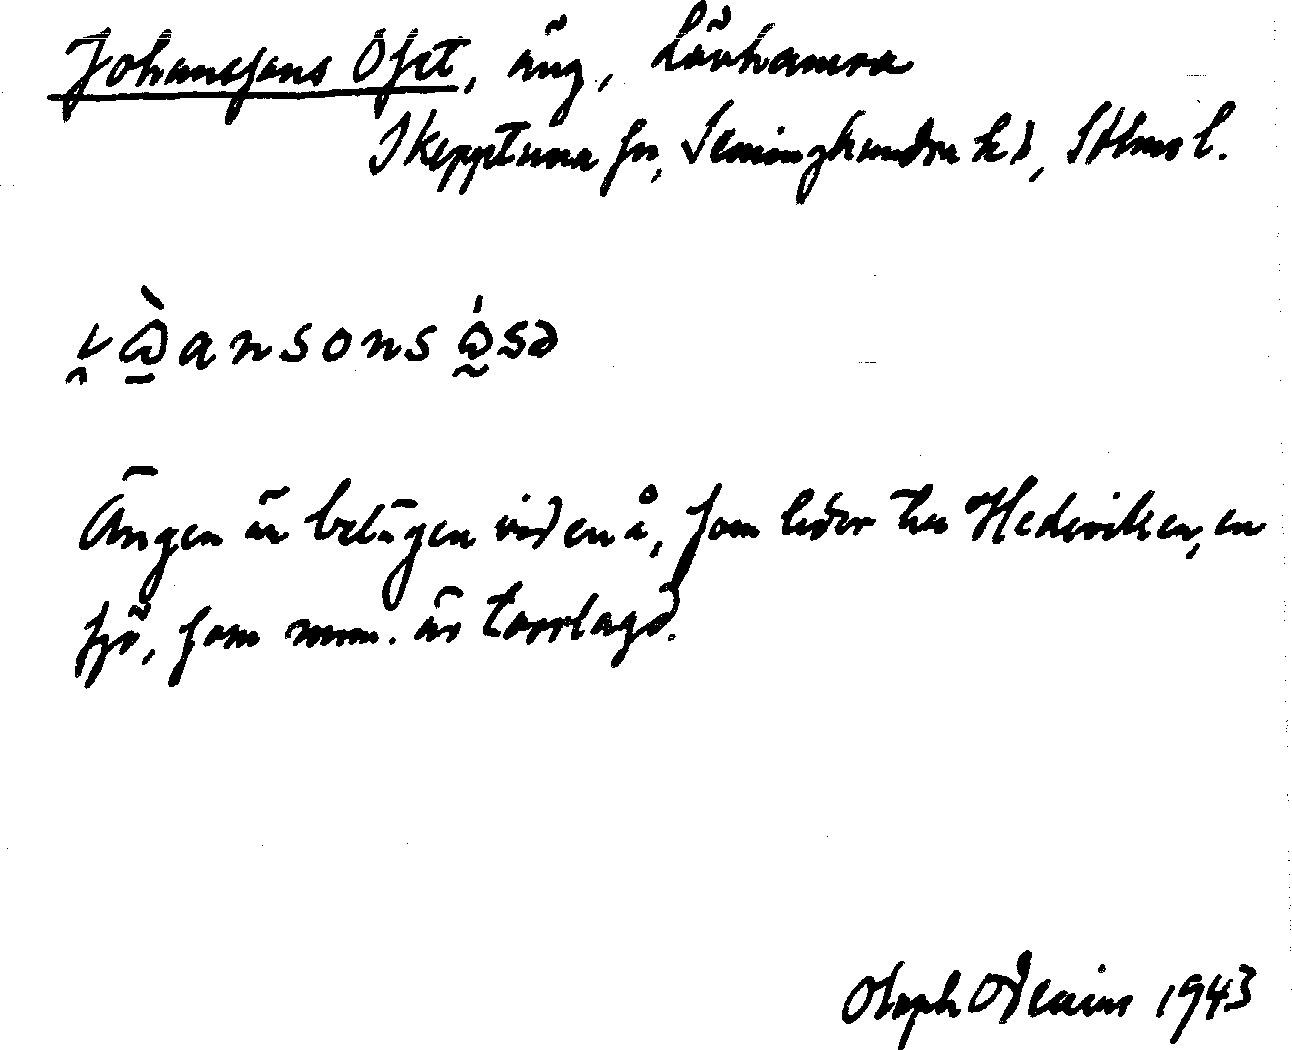 Johanssons Öset, äng, Lövhamra
Skepptuna sn, Seminghundra hd, Sthms l.
Ängen är belägen vid en å, som leder till Hederviken, en
sjö, som num. är torrlagd.
Oloph Odenius 1943